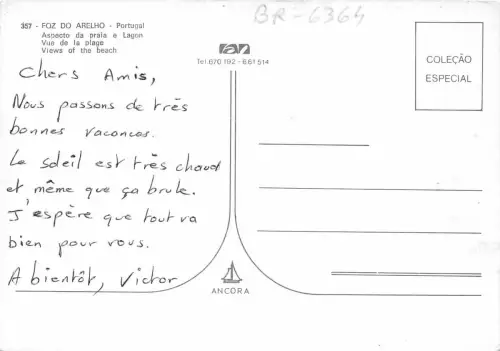 BR-6364
357 - FOZ DO ARELHO - Portugal
Aspecto da praia e Lagon
Vue de la plage
Views of the beach
Tel. 670 192 - 661 514
COLEÇÃO
ESPECIAL
Chers Amis,
Nous passons de très
bonnes vacances.
Le soleil est très chaud
et même que ça brule.
J'espère que tout va
bien pour vous.
A bientôt, Victor
ANCORA